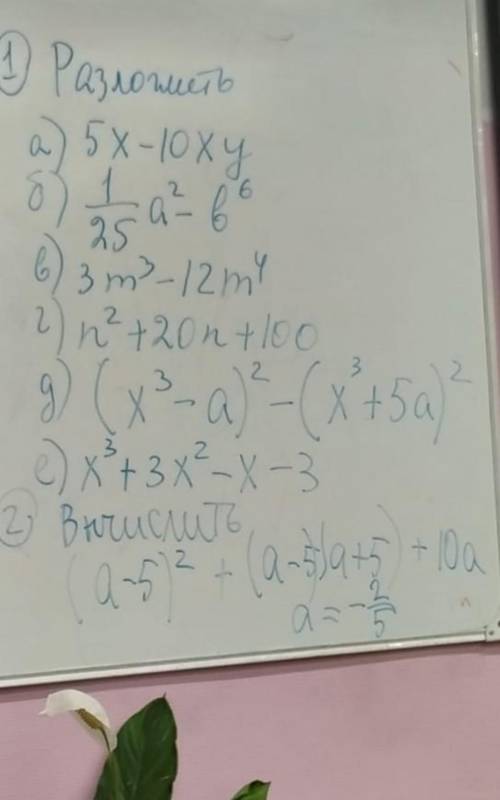 ① Разложить
а) 5x - 10xy
б) 1/25 a² - b⁶
в) 3m³ - 12m⁴
г) n² + 20n + 100
д) (x³ - a)² - (x³ + 5a)²
е) x³ + 3x² - x - 3
② Вычислить
(a - 5)² + (a - 5)(a + 5) + 10a
a = -2/5